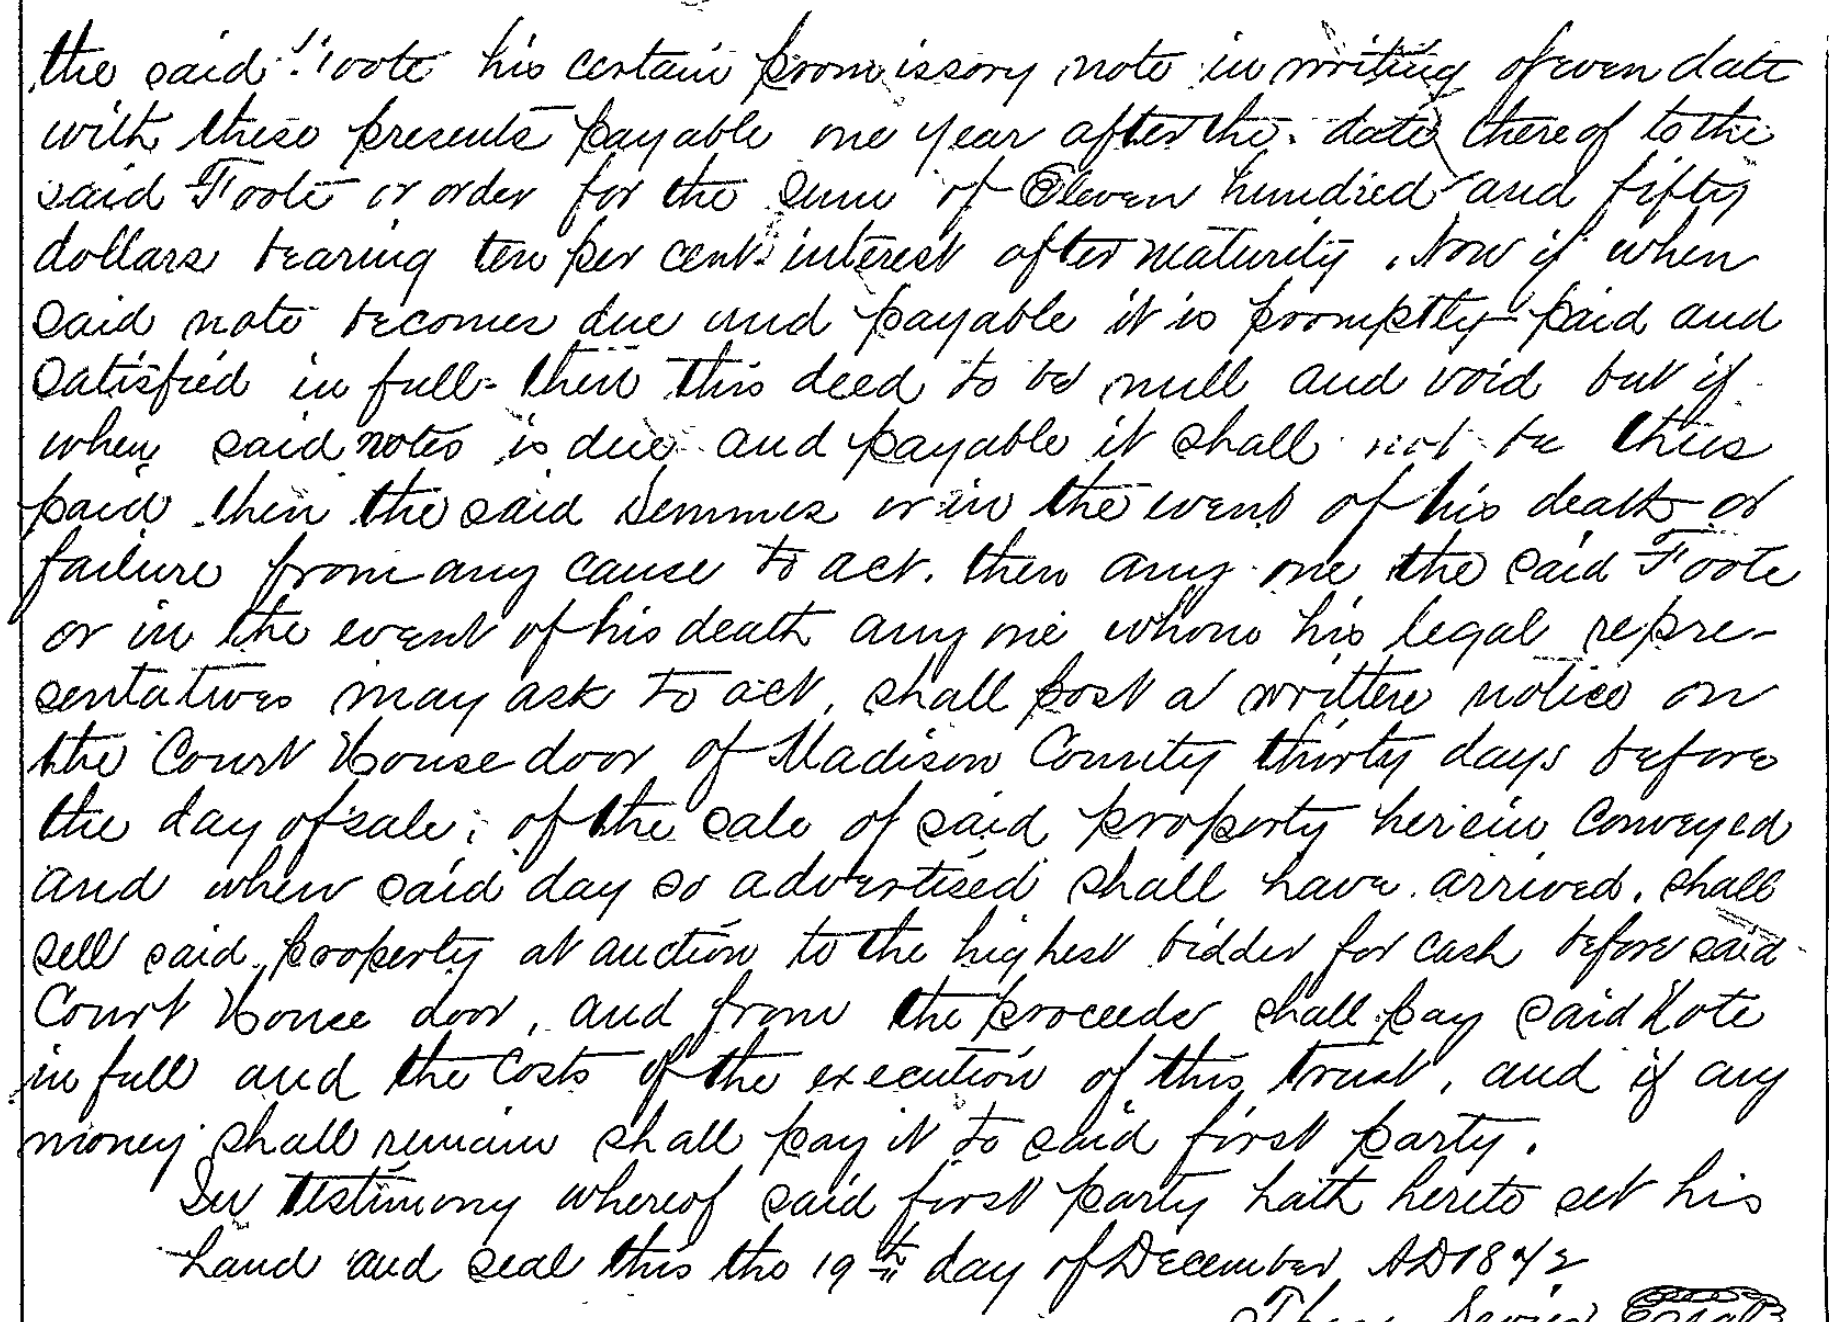 the said Foote his certain promissory note in writing of even date
with these presents payable one year after the date thereof to the
said Foote or order for the sum of Eleven hundred and fifty
dollars bearing ten per cent interest after maturity. Now if when
said note becomes due and payable it is promptly paid and
satisfied in full - then this deed to be null and void but if
when said notes is due and payable it shall not be thus
paid then the said Semmes or in the event of his death or
failure from any cause to act. then any one the said Foote
or in the event of his death any one whom his legal repre-
sentatives may ask to act, shall post a written notice on
the Court House door of Madison County thirty days before
the day of sale; of the sale of said property herein conveyed
and when said day so advertised shall have arrived, shall
sell said property at auction to the highest bidder for cash before said
Court House door, and from the proceeds shall pay said Note
in full and the costs of the execution of this trust, and if any
money shall remain shall pay it to said first party.
In testimony whereof said first party hath hereto set his
hand and seal this the 19th day of December AD 18